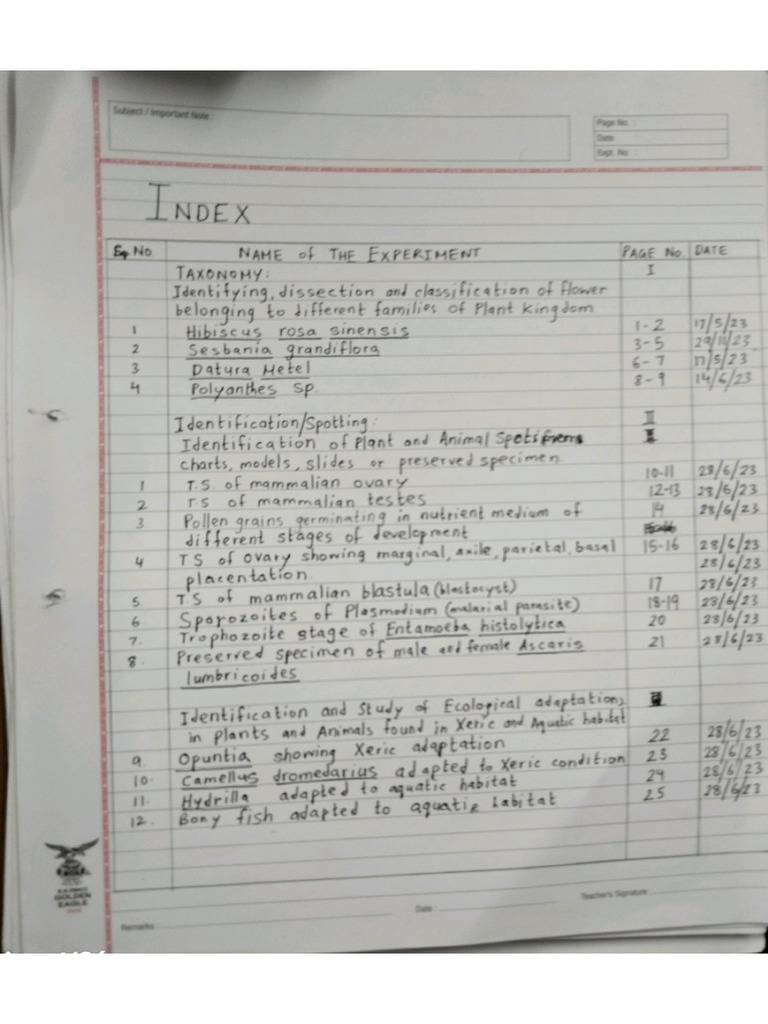 Subject / Important Note :
Page No. :
Date :
Expt. No. :
INDEX
Exp No. NAME of THE EXPERIMENT PAGE No. DATE
TAXONOMY: I
Identifying, dissection and classification of flower
belonging to different families of Plant Kingdom
1 Hibiscus rosa sinensis 1-2 17/5/23
2 Sesbania grandiflora 3-5 29/11/23
3 Datura Metel 6-7 17/5/23
4 Polyanthes sp. 8-9 14/6/23
Identification/Spotting: II
Identification of Plant and Animal Spots from
charts, models, slides or preserved specimen
1 T.S. of mammalian ovary 10-11 28/6/23
2 TS of mammalian testes 12-13 28/6/23
3 Pollen grains germinating in nutrient medium of 14 28/6/23
different stages of development
4 TS of ovary showing marginal, axile, parietal, basal 15-16 28/6/23
placentation. 28/6/23
5 T.S of mammalian blastula (blastocyst) 17 28/6/23
6 Sporozoites of Plasmodium (malarial parasite) 18-19 28/6/23
7. Trophozoite stage of Entamoeba histolytica 20 28/6/23
8. Preserved specimen of male and female Ascaris 21 28/6/23
lumbricoides
Identification and Study of Ecological adaptations
in plants and Animals found in Xeric and Aquatic habitat
9. Opuntia showing Xeric adaptation 22 28/6/23
10. Camellus dromedarius adapted to Xeric condition 23 28/6/23
11. Hydrilla adapted to aquatic habitat 24 28/6/23
12. Bony fish adapted to aquatic habitat 25 28/6/23
GOLDEN
EAGLE
Remarks
Date :
Teacher's Signature